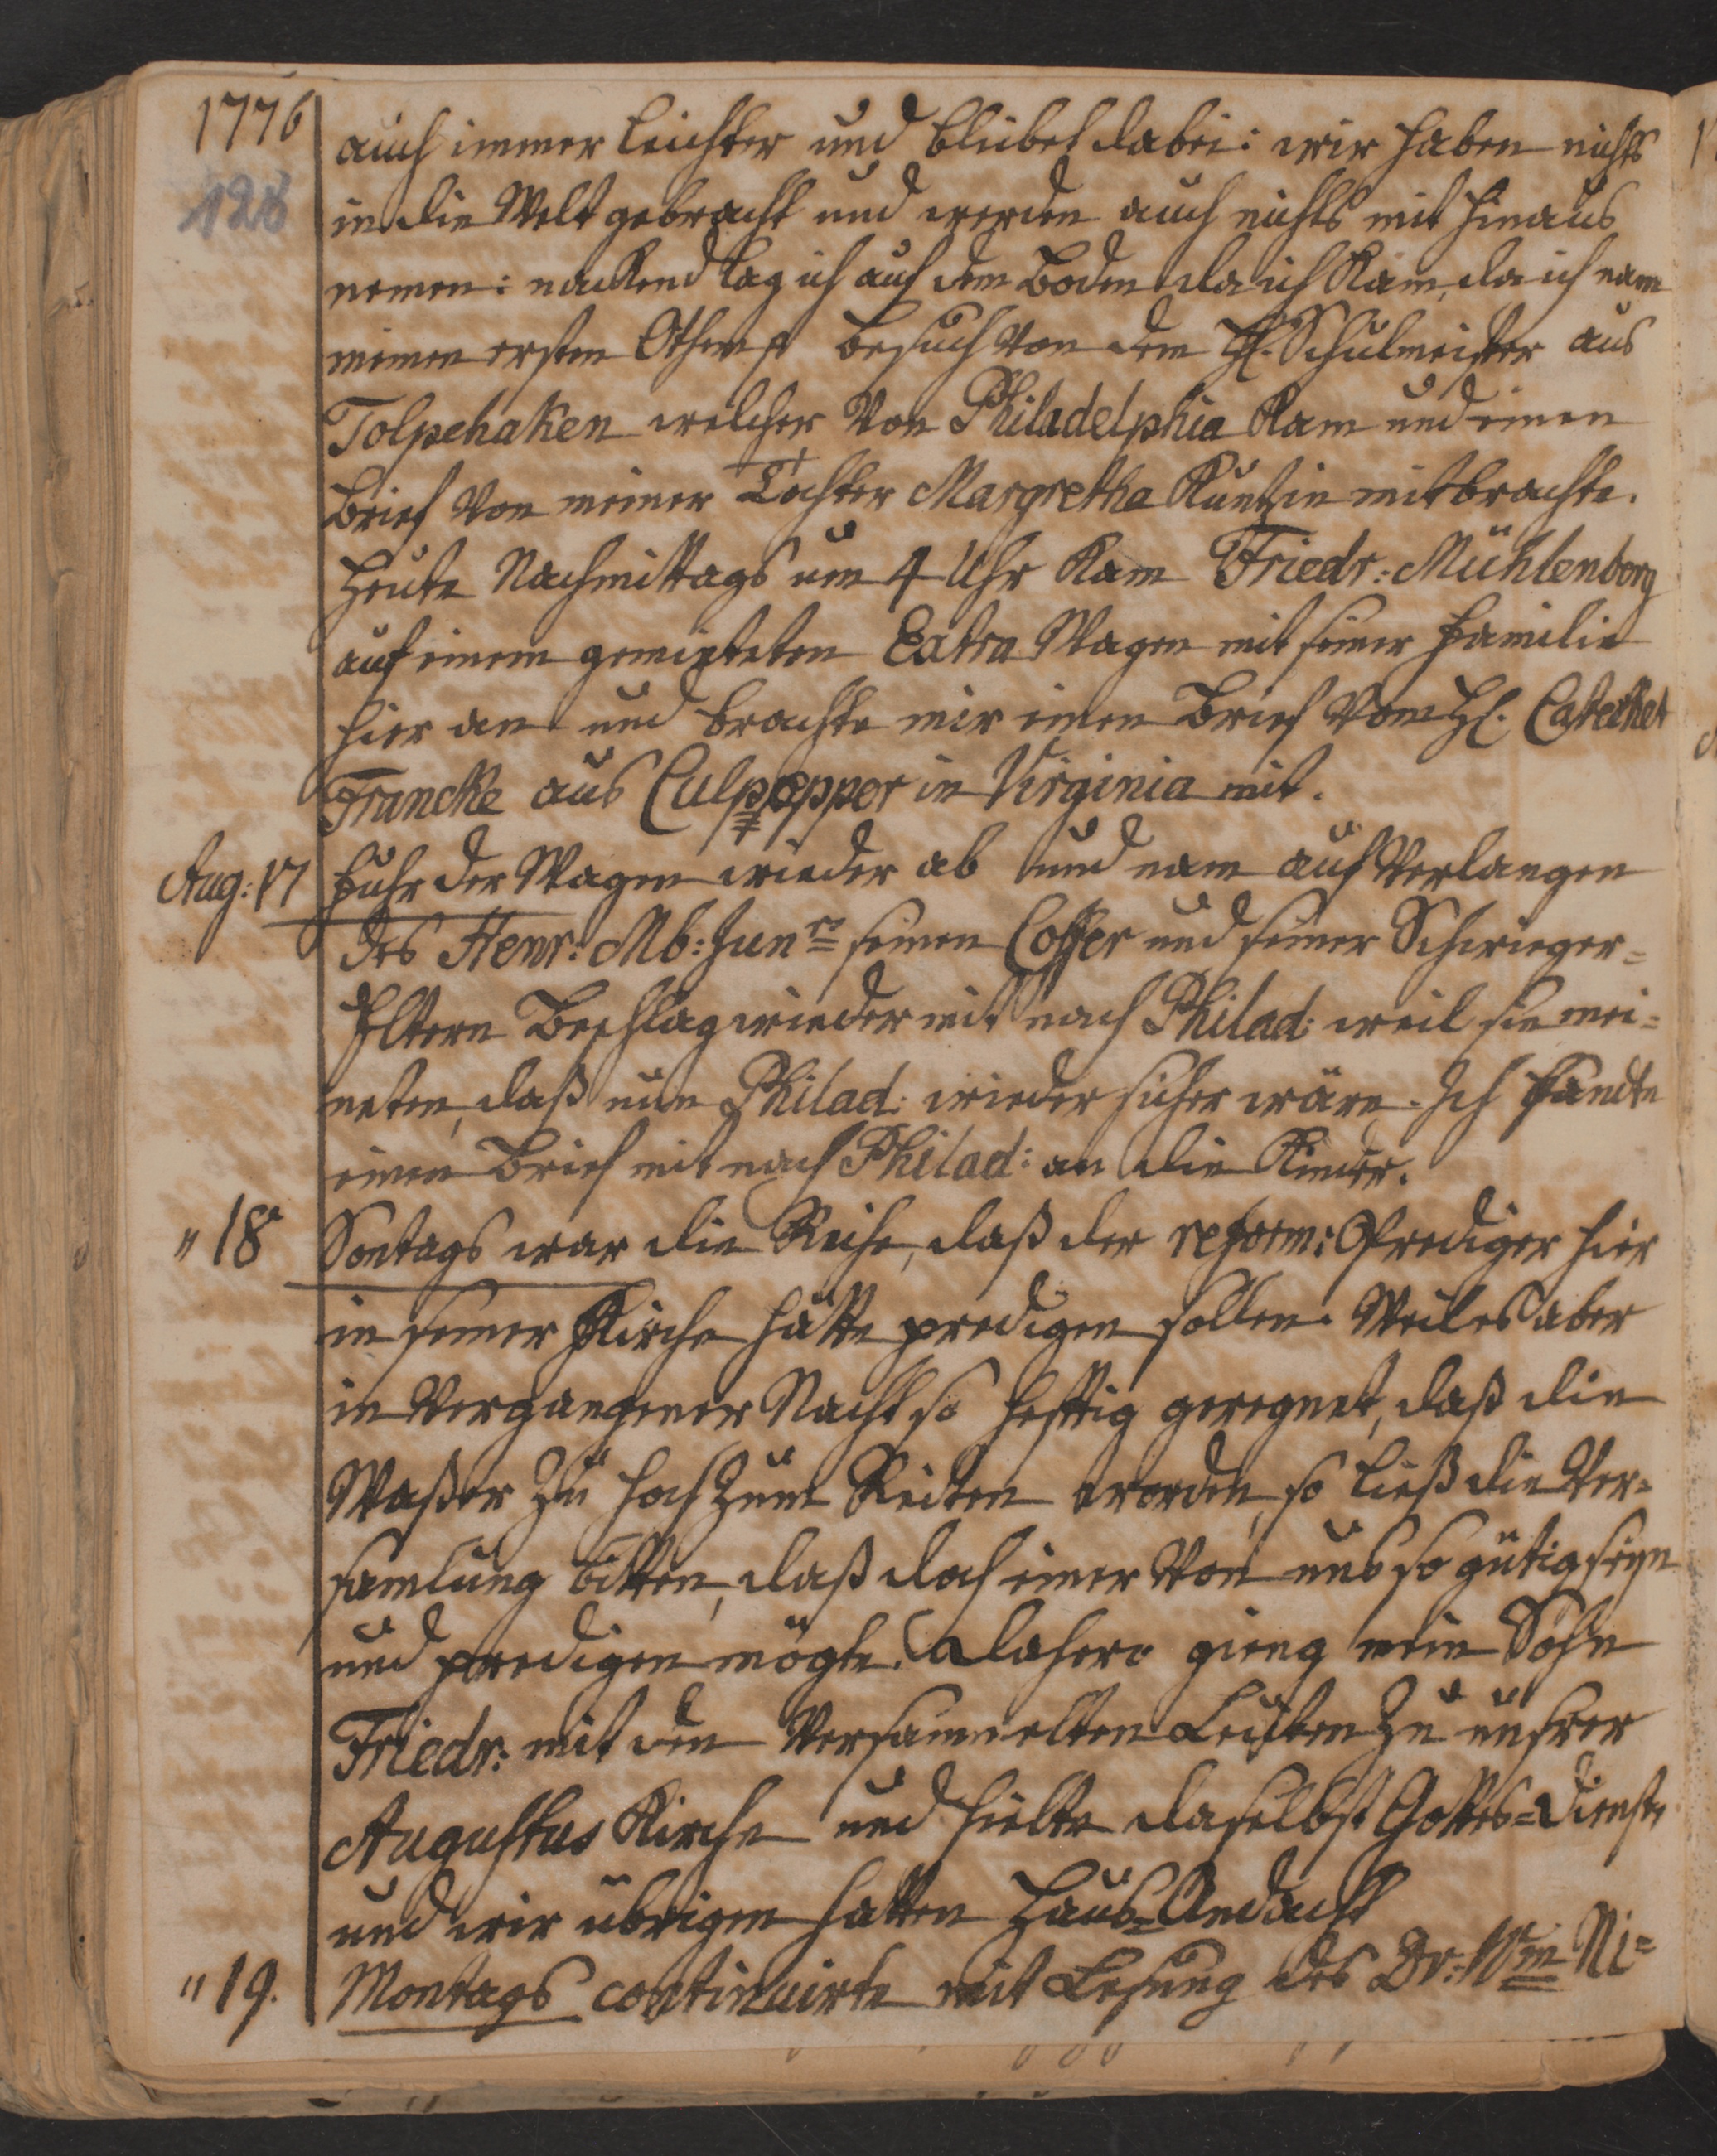 1776
128
auch immer leichter und bliebet dabei: wir haben nichts
in die Welt gebracht und werden auch nichts mit hinaus
nemen: nackend lag ich auf dem Boden da ich kam, da ich nam
meinen ersten Othem p Besuch von dem H. Schulmeister aus
Tolpehaken welcher von Philadelphia kam und einen
Brief von meiner Tochter Margretha Kuntzin mitbrachte.
Heute Nachmittags um 4 Uhr kam Friedr: Mühlenberg
auf einem gemieteten Extra Wagen mit seiner Familie
hier an und brachte mir einen Brief vom H. Catechet
Francke aus Culpepper in Virginia mit.
Aug: 17 Fuhr der Wagen wieder ab und nam auf Verlangen
des Henr: Mb: Junr seinen Coffer und seiner Schwieger=
Eltern Beschlag wieder mit nach Philad: weil sie mei=
neten, daß nun Philad: wieder sicher wäre. Ich sandte
einen Brief mit nach Philad: an die Kinder.
" 18 Sontags war die Reihe, daß der reform: Prediger hier
in seiner Kirche hätte predigen sollen. Weil es aber
in vergangener Nacht so heftig geregnet, daß die
Waßer zu hoch zum Reiten worden, so ließ die Ver=
samlung bitten, daß doch einer von uns so gütig seyn
und predigen mögte. Dahero gieng mein Sohn
Friedr: mit den versammelten Leuten zu unsrer
Augustus Kirche und hielte daselbst Gottes=Dienst
und wir übrigen hatten Haus=Andacht
" 19. Montags continuirte mit Lesung des Dr: Wm Ni=